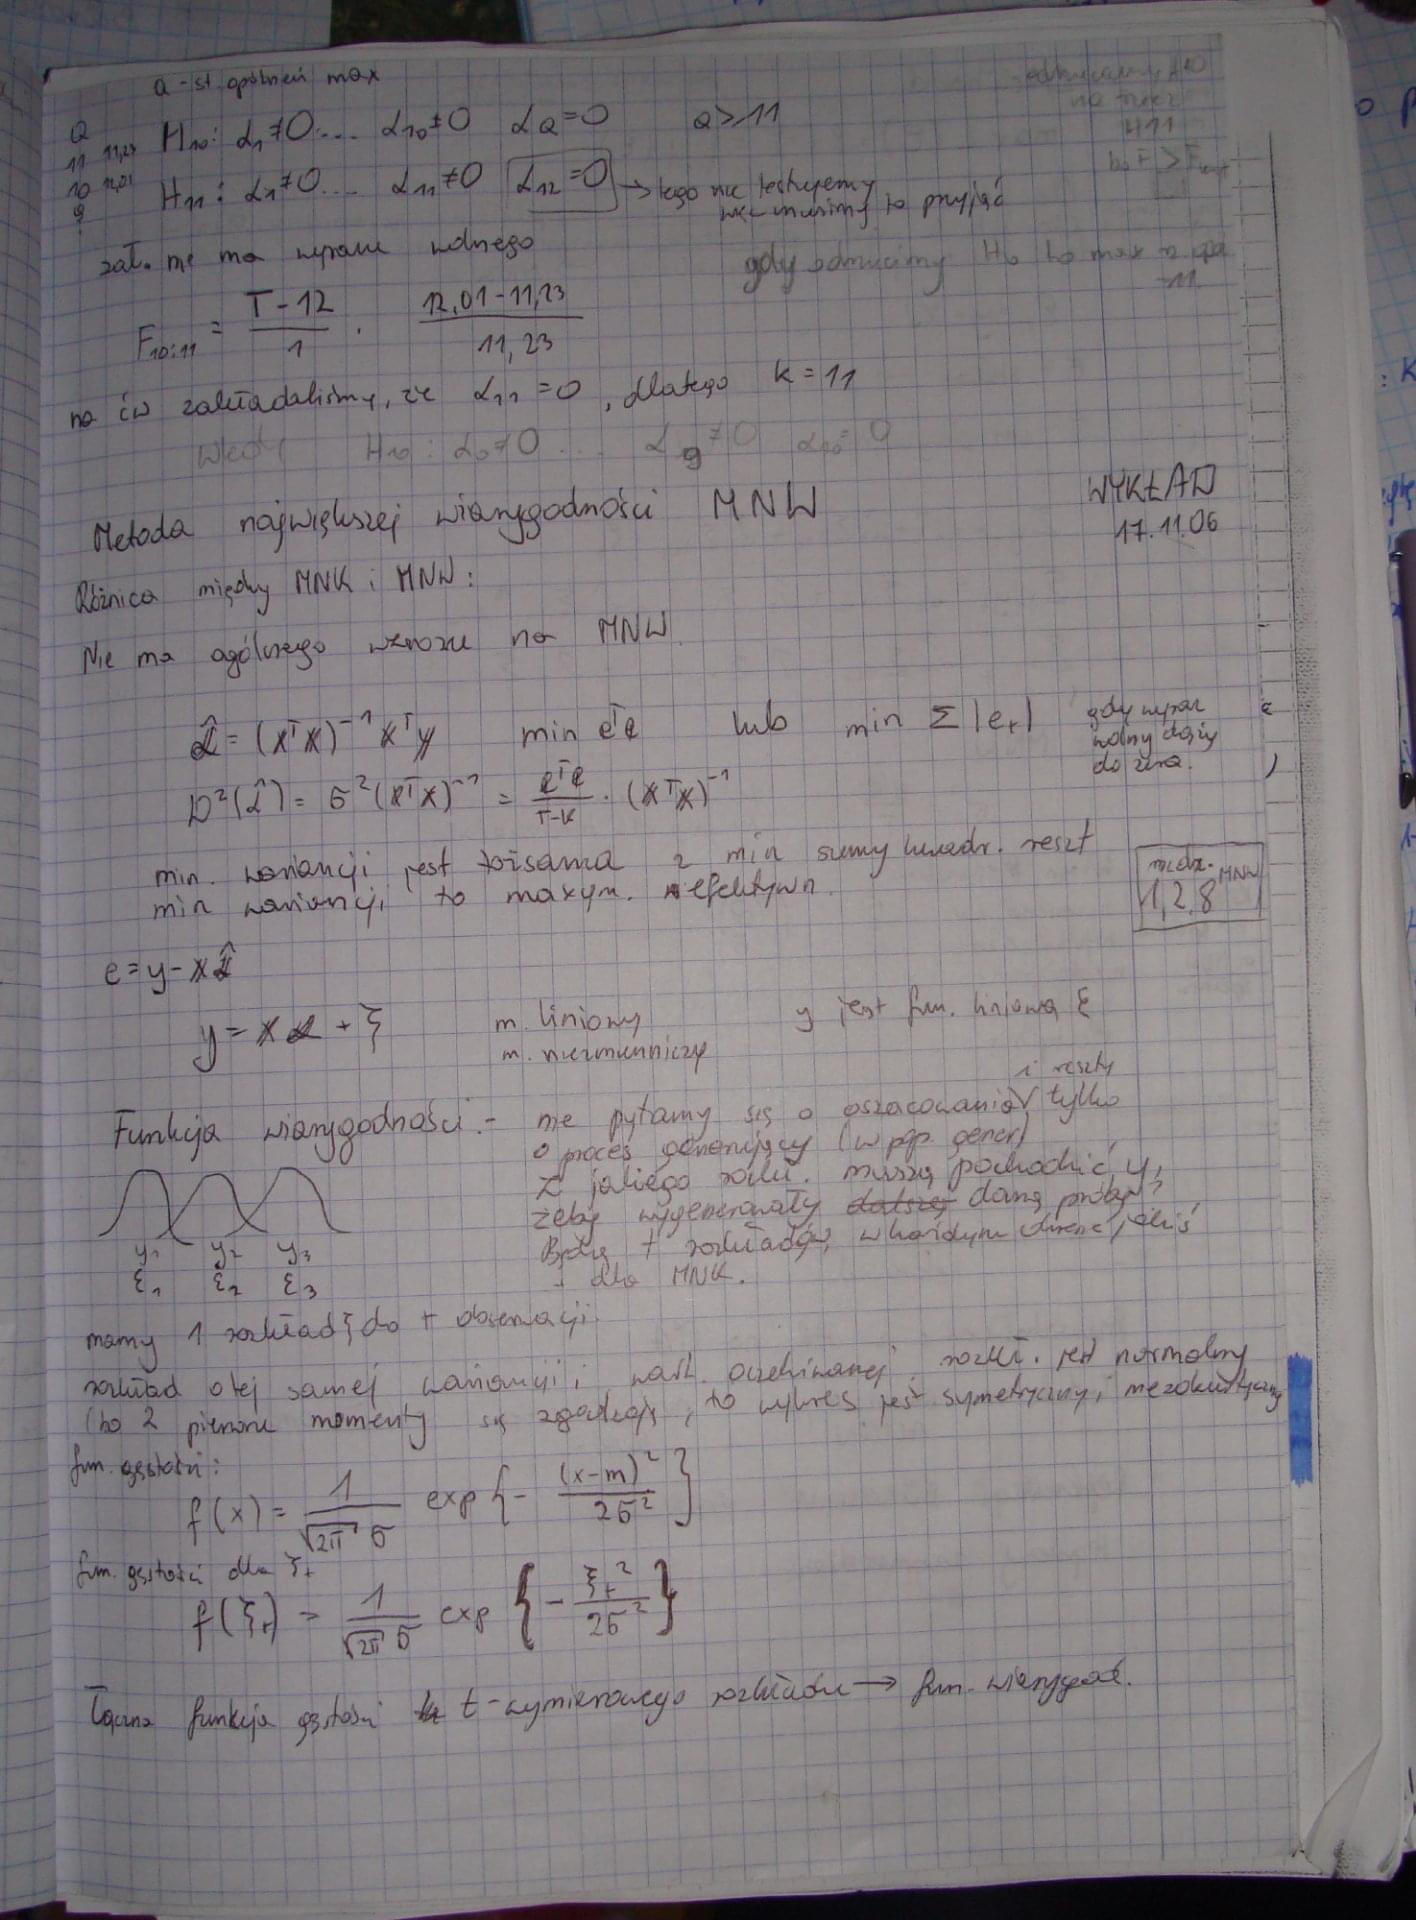 a - st. opóźnień max
Q
11 11,23
10 12,01
9
H₁₀: α₁≠0.... α₁₀≠0 α_Q=0 Q≥11
H₁₁: α₁≠0.... α₁₁≠0 α₁₂=0 → tego nie testujemy
więc musimy to przyjąć
odrzucamy 10
na rzecz
H11
bo F > F
zał. nie ma wyrazu wolnego
gdy odrzucimy H₀ to max rz. opó
11
F₁₀:₁₁ = (T-12)/1 · (12,01-11,23)/11,23
na ćw zakładaliśmy, że α₁₁=0, dlatego k=11
Wtedy H₁₀: α₀≠0 ... α₉≠0 α₁₀=0
WYKŁAD
17.11.06
Metoda największej wiarygodności MNW
Różnica między MNK i MNW:
Nie ma ogólnego wzoru na MNW.
α̂ = (XᵀX)⁻¹Xᵀy min eᵀe lub min Σ|eₜ| gdy wyraz
wolny dąży
do zera.
D²(α̂) = σ²(XᵀX)⁻¹ = eᵀe/(T-K) · (XᵀX)⁻¹
min. wariancji jest tożsama z min sumy kwadr. reszt
min wariancji to maxym. efektywn.
rozdz. MNW
1,2,8
e = y - Xα̂
y = Xα + ξ m. liniowy y jest fun. liniową ξ
m. niezmienniczy
Funkcja wiarygodności - nie pytamy się o oszacowania i reszty tylko
o proces generujący (w pop. gener)
z jakiego rozkł. muszą pochodzić y,
żeby wygenerowały daną próbę?
Będą t rozkładów, w każdym dwa
dla MNK.
y₁ y₂ y₃
ξ₁ ξ₂ ξ₃
mamy 1 rozkład ξ do t obserwacji.
rozkład o tej samej wariancji i wart. oczekiwanej, rozkł. jest normalny
(bo 2 pierwsze momenty się zgadzają, to wykres jest symetryczny i mezokurtyczny
fun. gęstości:
f(x) = 1/(√2π σ) exp{- (x-m)²/2σ²}
fun. gęstości dla ξₜ
f(ξₜ) = 1/(√2π σ) exp{- ξₜ²/2σ²}
Łączna funkcja gęstości t-wymiarowego rozkładu → fun. wiarygod.